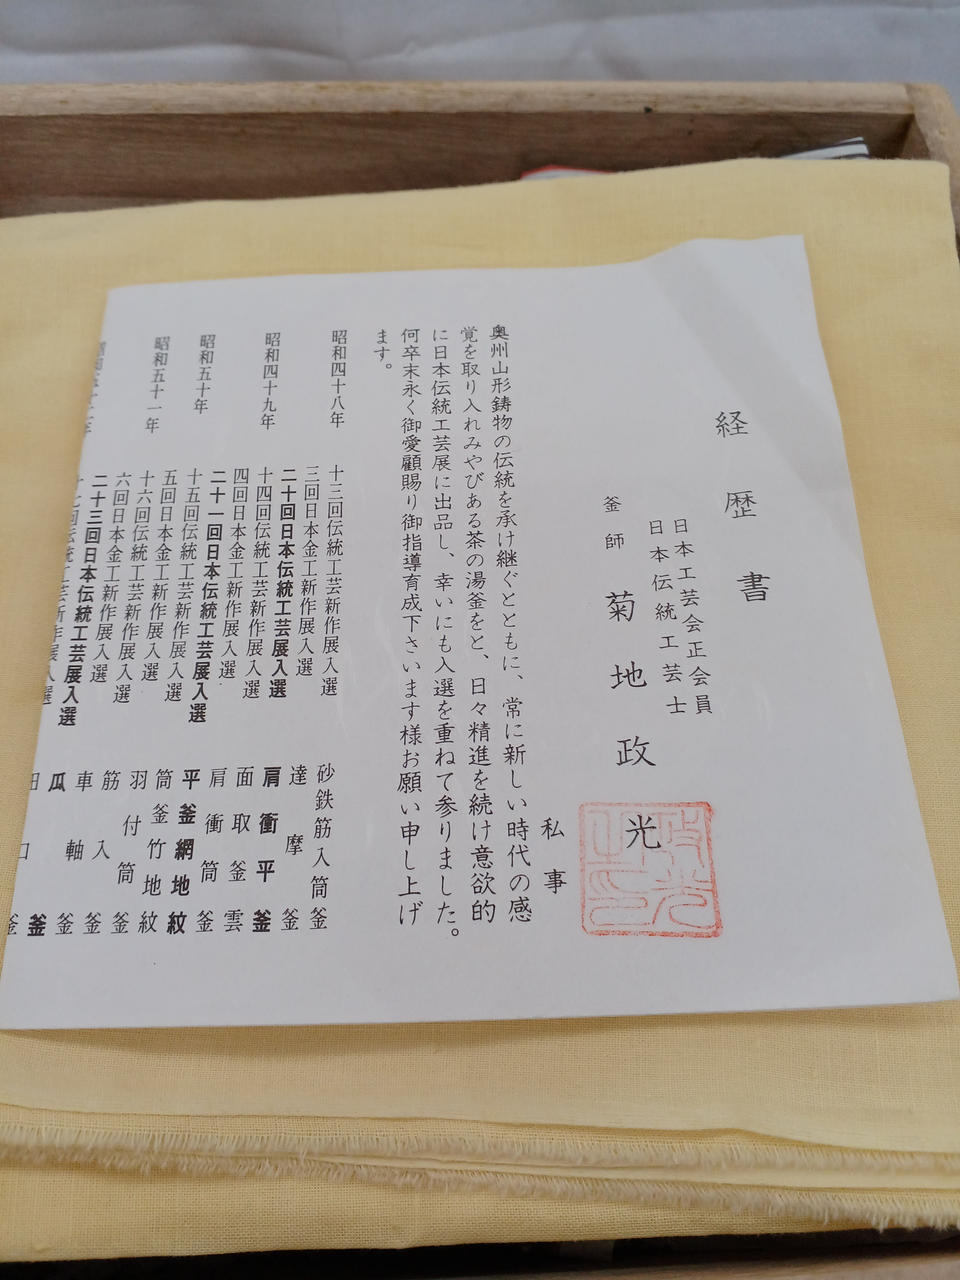 経歴書
日本工芸会正会員
日本伝統工芸士
釜師 菊地政光
私事
奥州山形鋳物の伝統を承け継ぐとともに、常に新しい時代の感
覚を取り入れみやびある茶の湯釜をと、日々精進を続け意欲的
に日本伝統工芸展に出品し、幸いにも入選を重ねて参りました。
何卒末永く御愛顧賜り御指導育成下さいます様お願い申し上げ
ます。
昭和四十八年 十三回伝統工芸新作展入選 砂鉄筋入筒釜
三回日本金工新作展入選 達摩釜
二十回日本伝統工芸展入選 肩衝平釜
昭和四十九年 十四回伝統工芸新作展入選 面取釜雲
四回日本金工新作展入選 肩衝筒釜
二十一回日本伝統工芸展入選 平釜網地紋
昭和五十年 十五回伝統工芸新作展入選 筒釜竹地紋
五回日本金工新作展入選 羽付筒釜
昭和五十一年 十六回伝統工芸新作展入選 筋入釜
六回日本金工新作展入選 車軸釜
二十三回日本伝統工芸展入選 瓜釜
十七回伝統工芸新作展入選 口釜